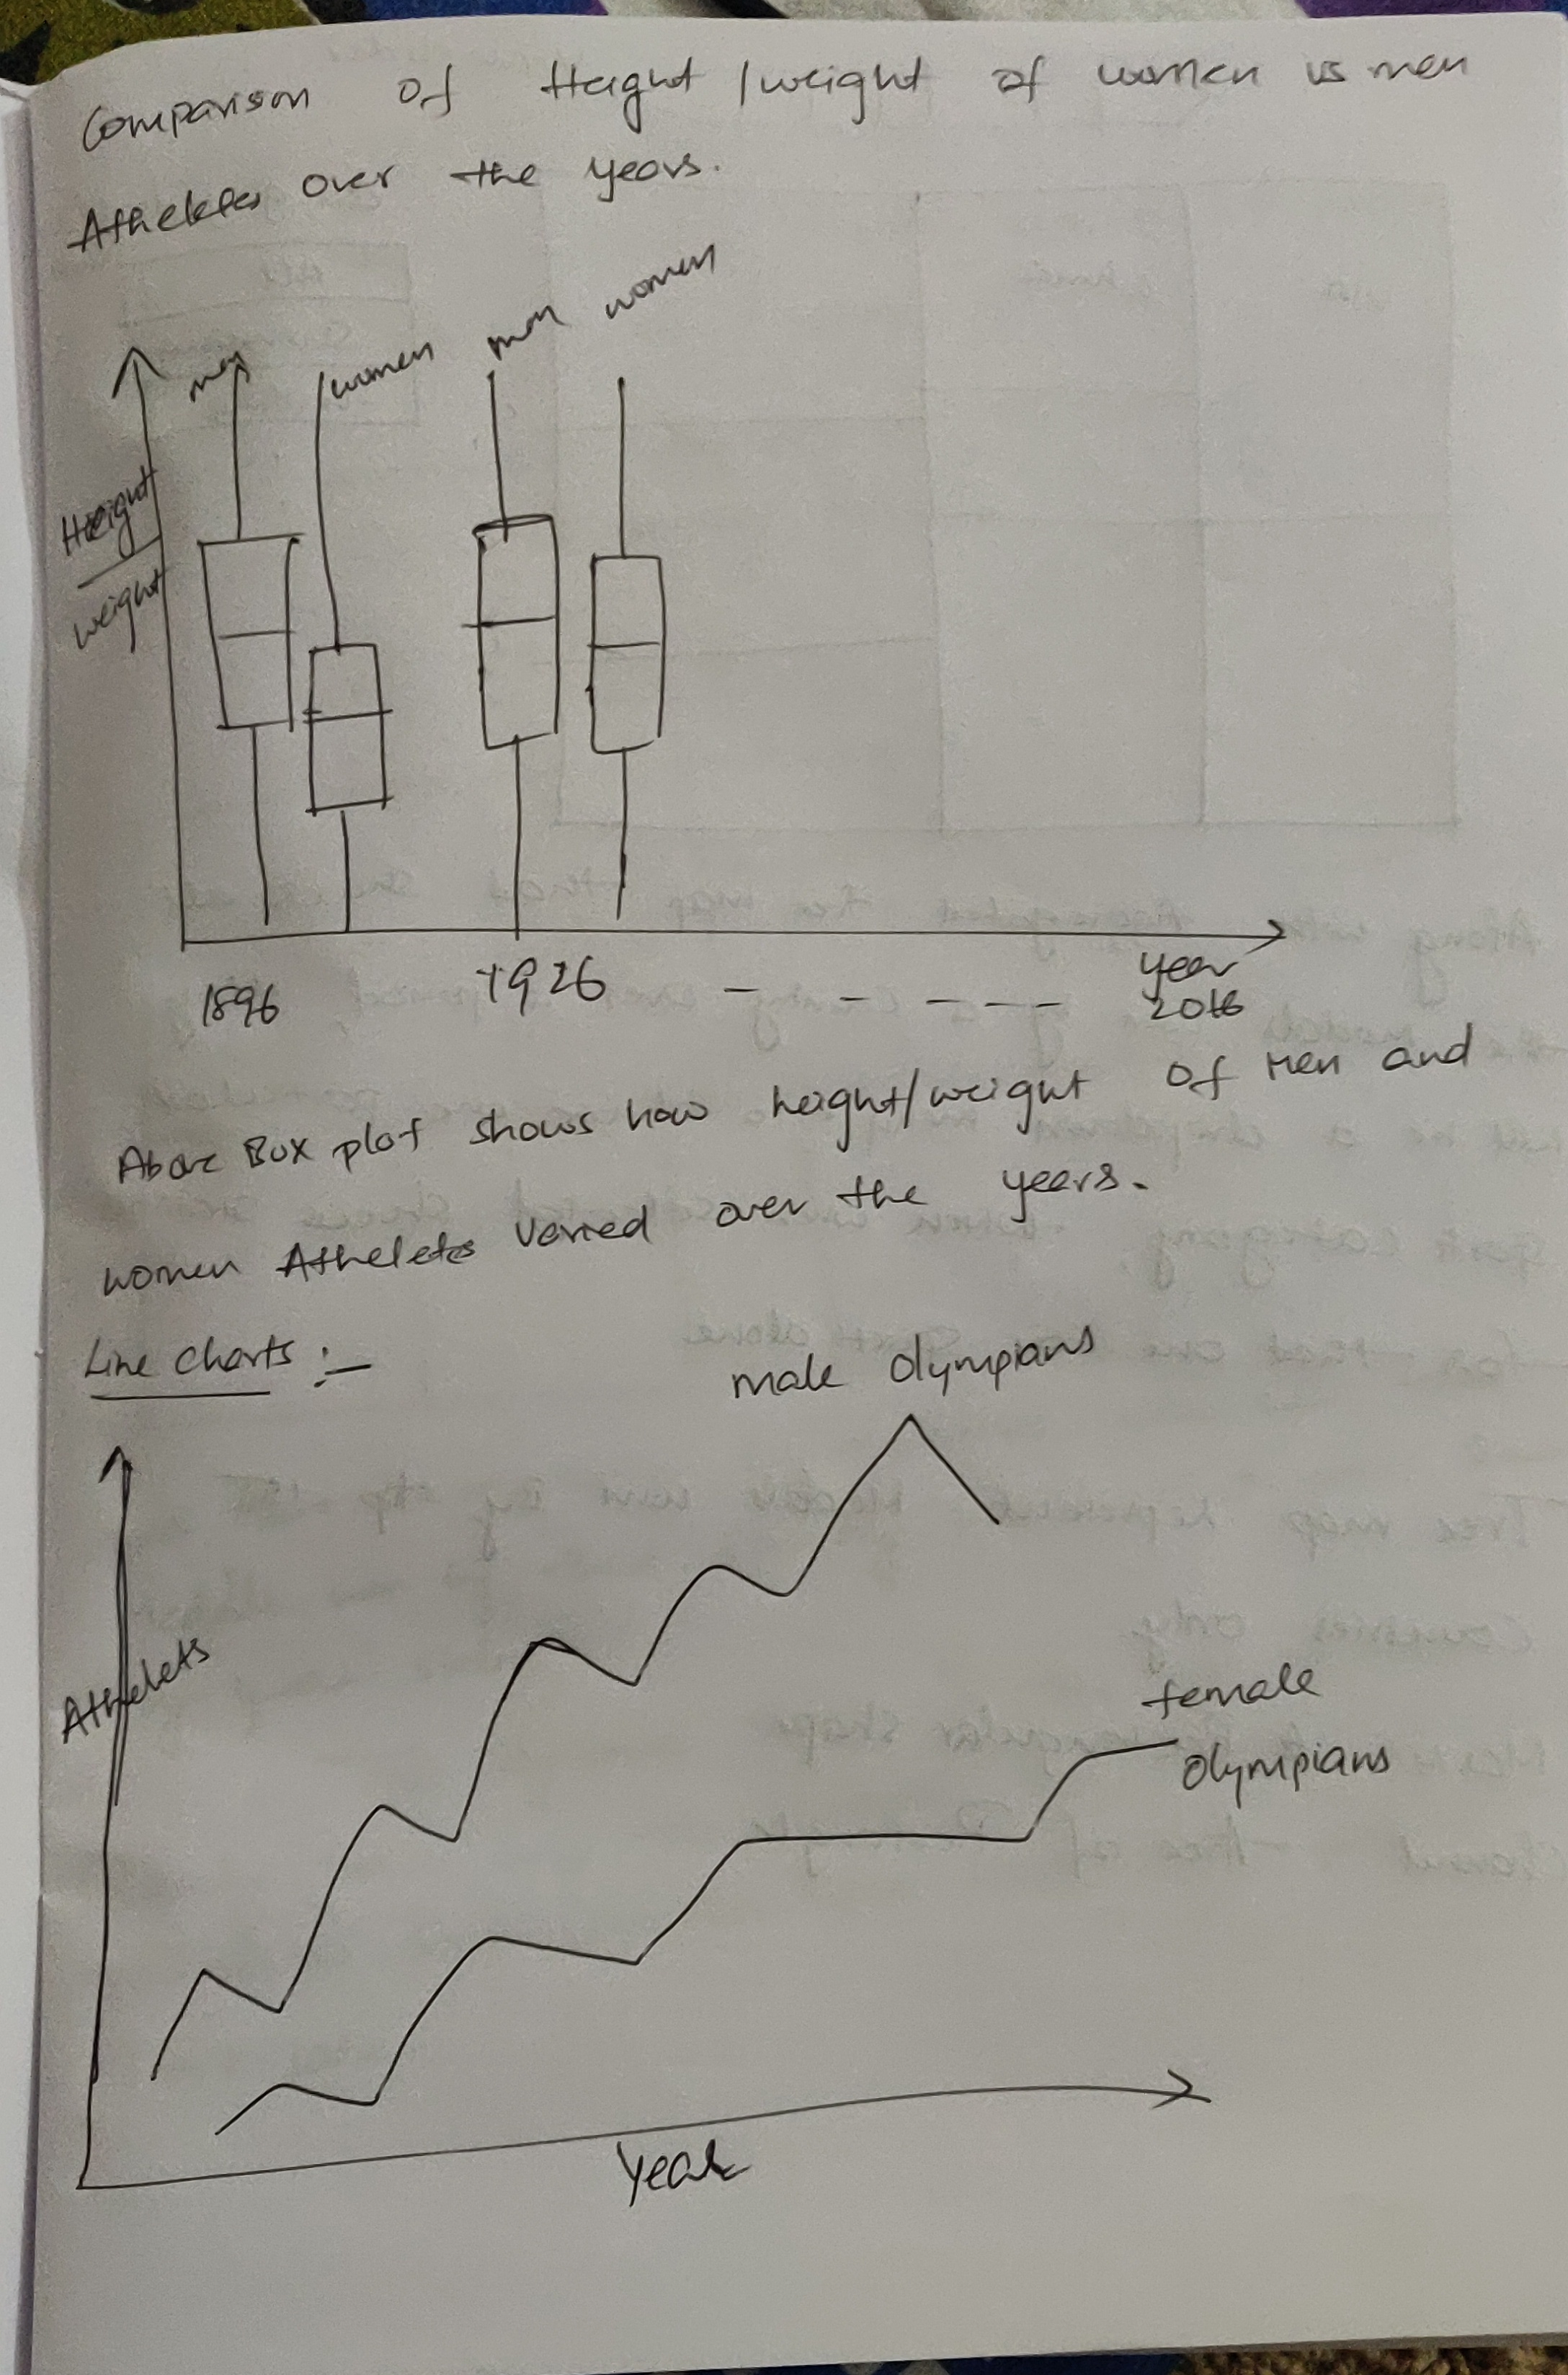 Comparison of Height / weight of women vs men
Atheletes over the years.
men women men women
Height
weight
1896 1926 – – – – – year
2016
Above Box plot shows how height/weight of Men and
women Atheletes varied over the years.
Line charts :–
male Olympians
Athelets
female
Olympians
Year